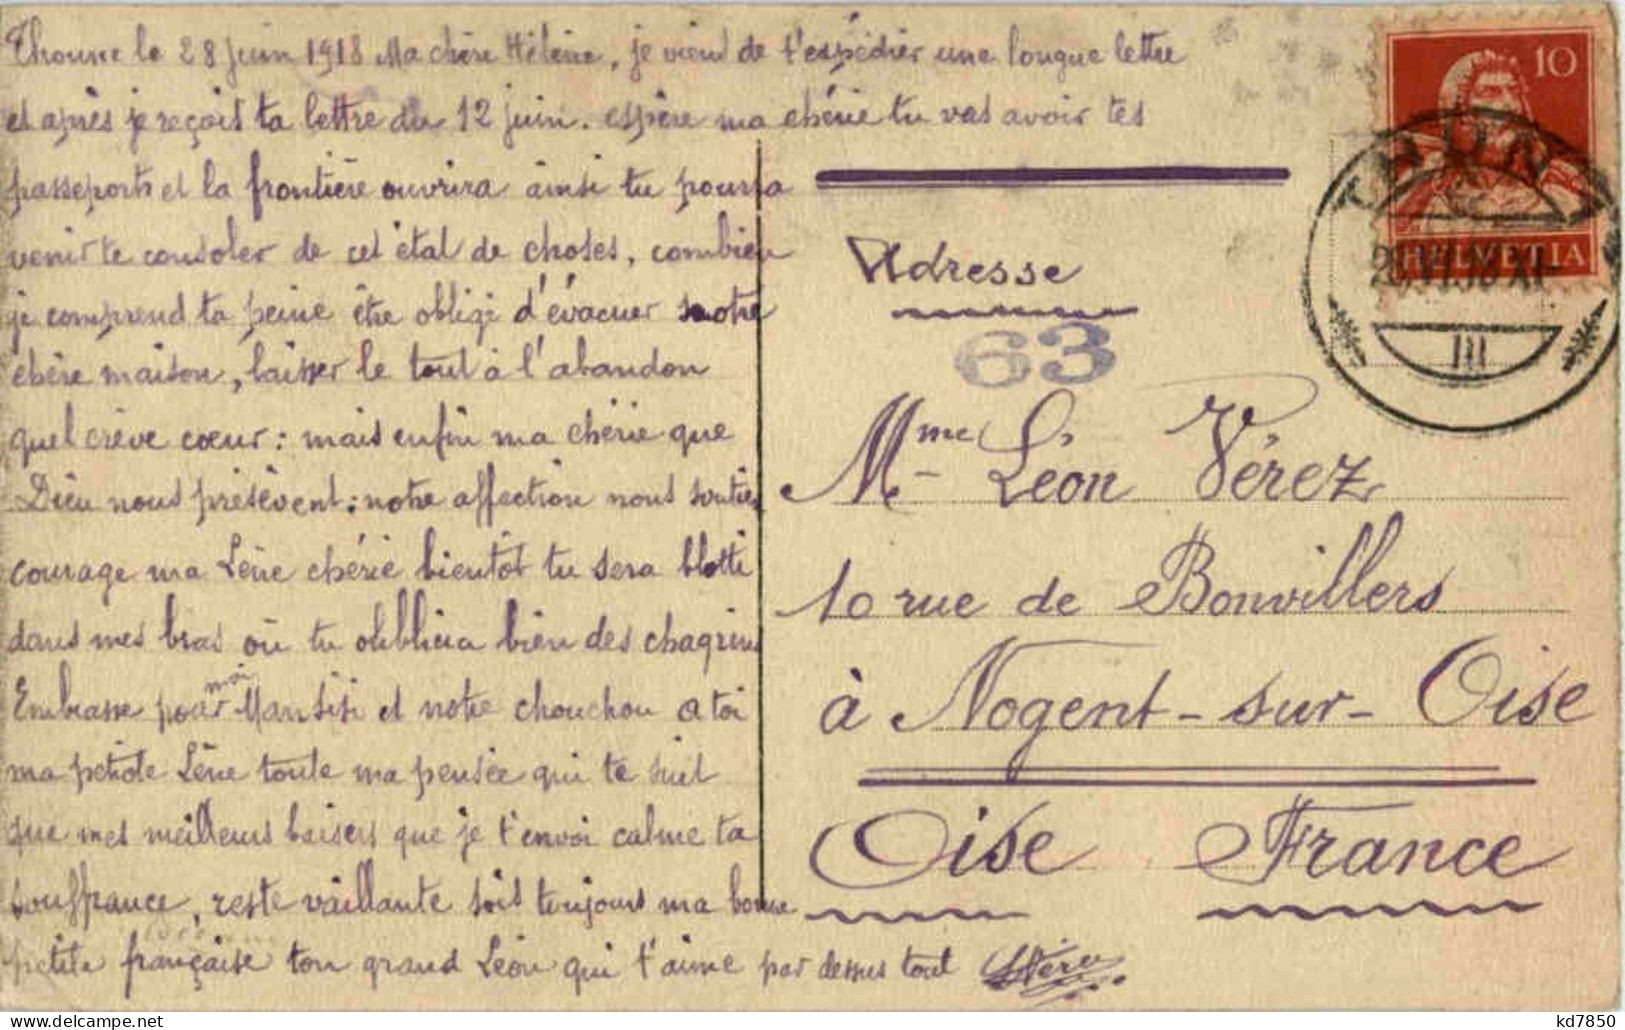 Thoune le 28 Juin 1918 Ma chère Hélène, je viend de t'espédier une longue lettre
et après je reçois ta lettre du 12 juin. espère ma chérie tu vas avoir tes
passeports et la frontière ouvrira ainsi tu pourra
venir te consoler de cet état de choses, combien
je comprend ta peine être obligé d'évacuer notre
chère maison, laisser le tout à l'abandon
quel crève cœur : mais enfin ma chérie que
Dieu nous présèvent : notre affection nous
courage ma Lène chérie bientôt tu sera blotti
dans mes bras où tu oubliera bien des chagrins
Embrasse pour moi et notre chouchou a toi
ma petiote Lène toute ma pensée qui te suit
que mes meilleurs baisers que je t'envoi calme ta
souffrance, reste vaillante sois toujours ma bonne
petite française ton grand Léon qui t'aime par dessus tout LVérez
10
HELVETIA
THUN
VI.18 XI
III
Adresse
63
Mme Léon Vérez
10 rue de Bonvillers
à Nogent-sur-Oise
Oise France
kd7850